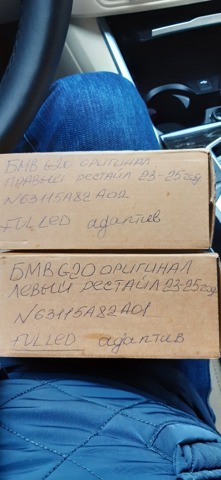 БМВ G20 ОРИГИНАЛ
ПРАВЫЙ РЕСТАЙЛ 23-25год
N63115A82A02
FULLED адаптив
БМВ G20 ОРИГИНАЛ
ЛЕВЫЙ РЕСТАЙЛ 23-25год
N63115A82A01
FULLED адаптив